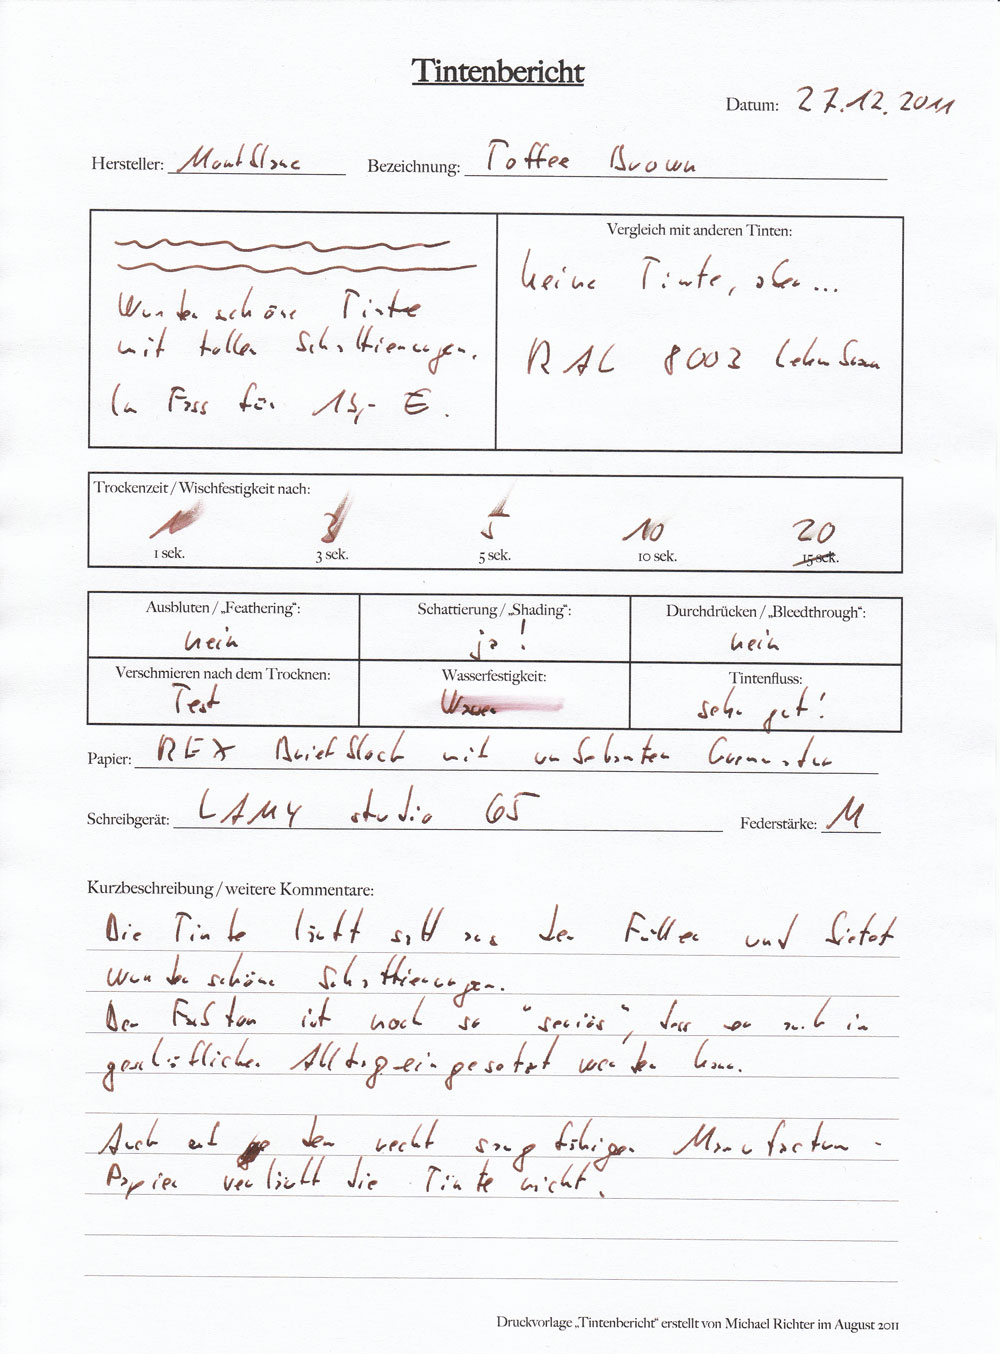 Tintenbericht
Datum: 27.12.2011
Hersteller: Montblanc Bezeichnung: Toffee Brown
Wunderschöne Tinte
mit tollen Schattierungen.
Im Fass für 13,- €.
Vergleich mit anderen Tinten:
keine Tinte, aber...
RAL 8003 Lehmbraun
Trockenzeit / Wischfestigkeit nach:
1 3 5 10 20
1 sek. 3 sek. 5 sek. 10 sek. 15 sek.
Ausbluten / „Feathering“: Schattierung / „Shading“: Durchdrücken / „Bleedthrough“:
nein ja! nein
Verschmieren nach dem Trocknen: Wasserfestigkeit: Tintenfluss:
Test sehr gut!
Papier: REX Briefblock mit unbekannter Grammatur
Schreibgerät: LAMY studio 65 Federstärke: M
Kurzbeschreibung / weitere Kommentare:
Die Tinte läuft satt aus dem Füller und bietet
wunderschöne Schattierungen.
Der Farbton ist noch so "seriös", dass er auch im
geschäftlichen Alltag eingesetzt werden kann.
Auch auf dem recht saugfähigen Manufactum-
Papier verläuft die Tinte nicht.
Druckvorlage „Tintenbericht“ erstellt von Michael Richter im August 2011